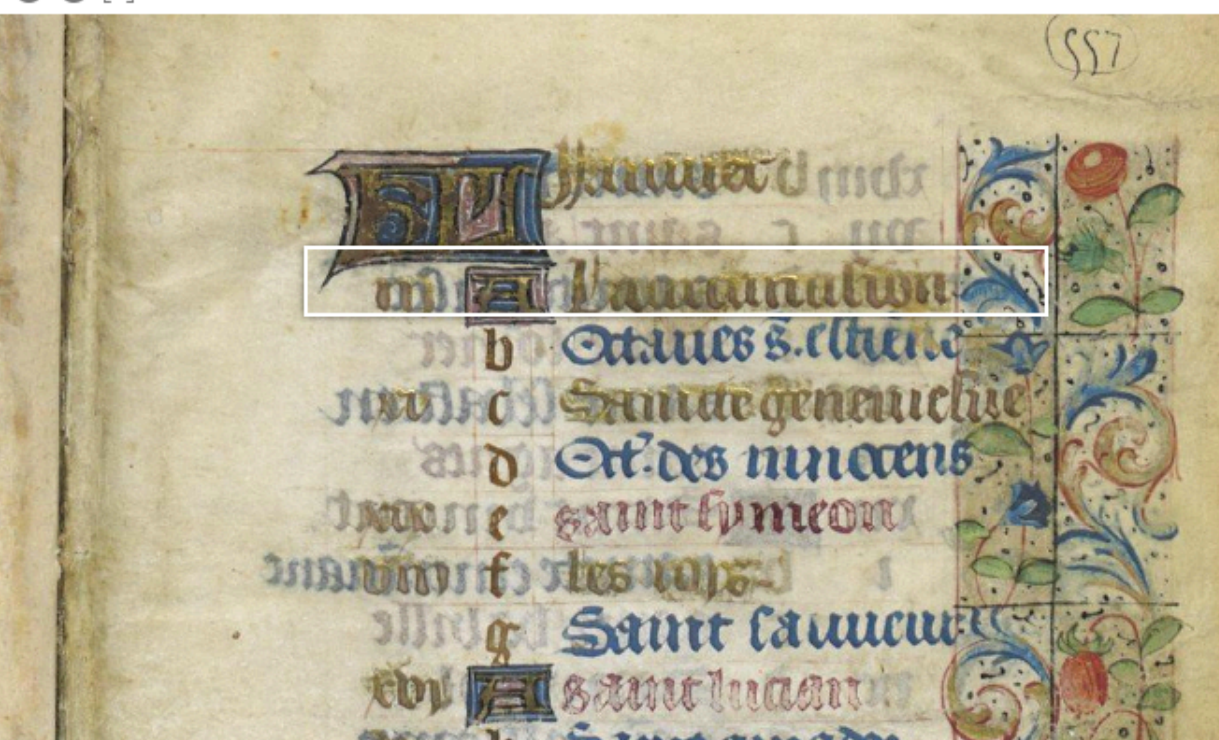 557
KL Januier
iii A La circuncision
b Octaues s. estiene
xi c Saincte geneuiefue
d Oct. des innocens
xix e saint symeon
viii f les roys
g Saint sauueur
xvi A saint lucian